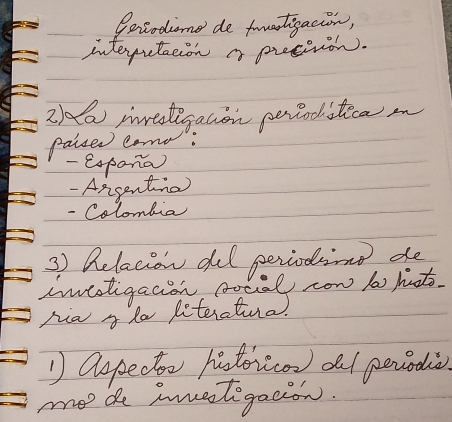 Periodismo de investigación,
interpretación y precisión.
2) La investigación periodística en
países como:
- España
- Argentina
- Colombia
3) Relación del periodismo de
investigación social con la histo-
ria y la literatura.
1) Aspectos históricos del periodis-
mo de investigación.